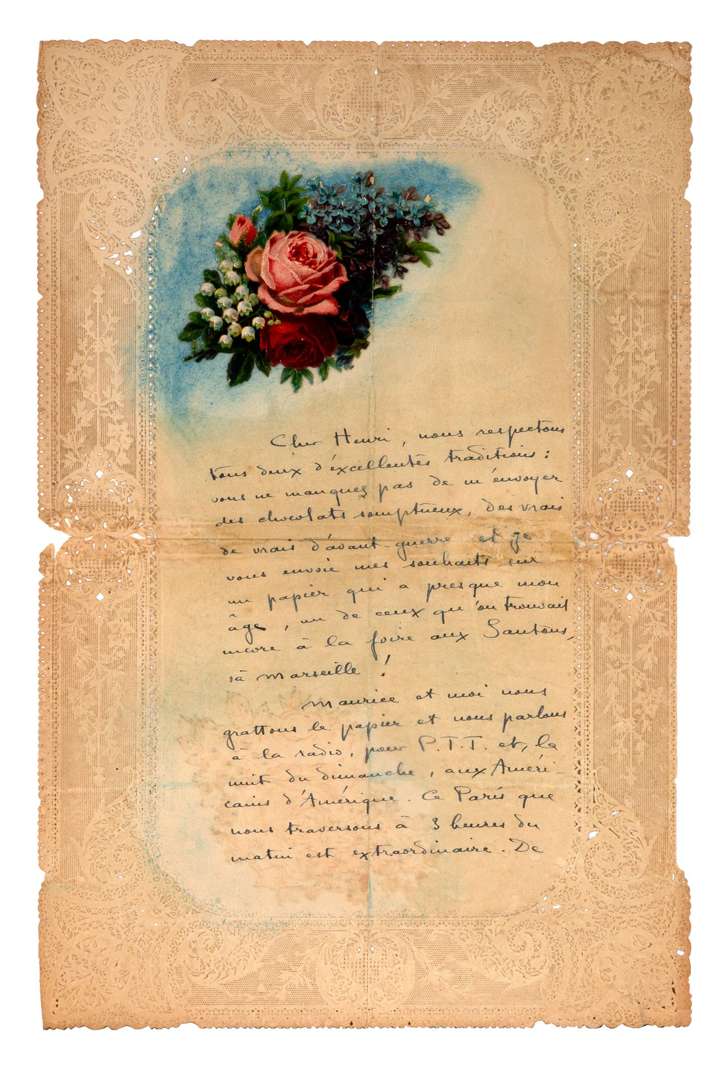 Cher Henri, nous respectons
tous deux d'excellentes traditions :
vous ne manquez pas de m'envoyer
des chocolats somptueux, des vrais
de vrais d'avant guerre et je
vous envoie mes souhaits sur
un papier qui a presque mon
âge, un de ceux qu'on trouvait
encore à la foire aux Santons,
à Marseille !
Maurice et moi nous
grattons le papier et nous parlons
à la radio, pour P.T.T. et, la
nuit du dimanche, aux Améri
cains d'Amérique. Ce Paris que
nous traversons à 3 heures du
matin est extraordinaire. De